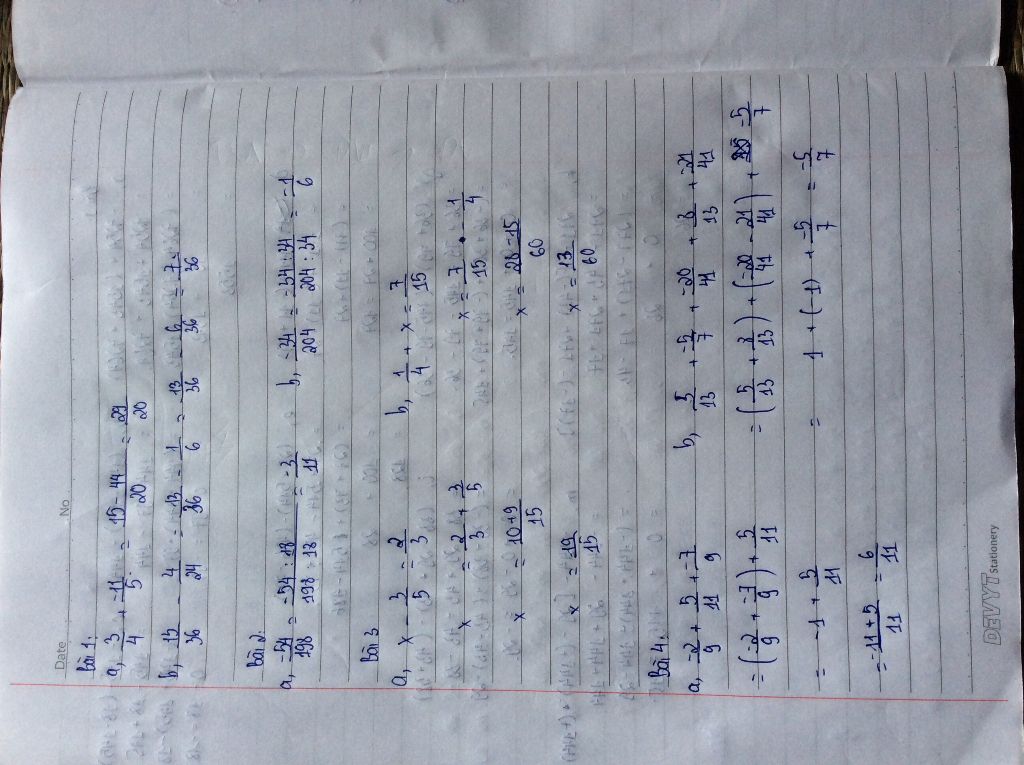 Date No
Bài 1:
a, 3/4 + -11/5 = 15 - 44/20 = 29/20
b, 15/36 - 4/24 = 13/36 - 1/6 = 13/36 - 6/36 = 7/36
Bài 2:
a, -54/198 = -54 : 18/198 : 18 = -3/11 b, -34/204 = -34 : 34/204 : 34 = -1/6
Bài 3
a, x - 3/5 = 2/3 b, 1/4 + x = 7/15
x = 2/3 + 3/5 x = 7/15 - 1/4
x = 10+9/15 x = 28-15/60
x = 19/15 x = 13/60
Bài 4.
a, -2/9 + 5/11 + -7/9 b, 5/13 + -5/7 + -20/41 + 8/13 + -21/41
= (-2/9 + -7/9) + 5/11 = (5/13 + 8/13) + (-20/41 - 21/41) + -5/7
= -1 + 5/11 = 1 + (-1) + -5/7 = -5/7
= -11 + 5/11 = 6/11
DEVYT Stationery